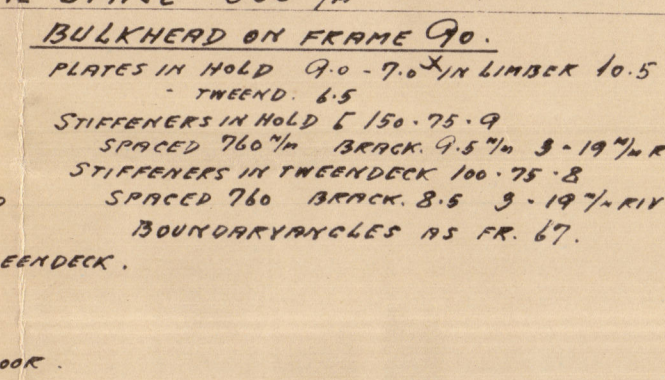 BULKHEAD ON FRAME 90.
PLATES IN HOLD 9.0 - 7.0 x IN LIMBER 10.5
" TWEEND. 6.5
STIFFENERS IN HOLD [ 150 · 75 · 9
SPACED 760 m/m BRACK. 9.5 m/m 3 - 19 m/m R
STIFFENERS IN TWEENDECK 100 · 75 · 8
SPACED 760 BRACK. 8.5 3 - 19 m/m RIV
BOUNDARYANGLES AS FR. 67.
EENDECK.
OOR.